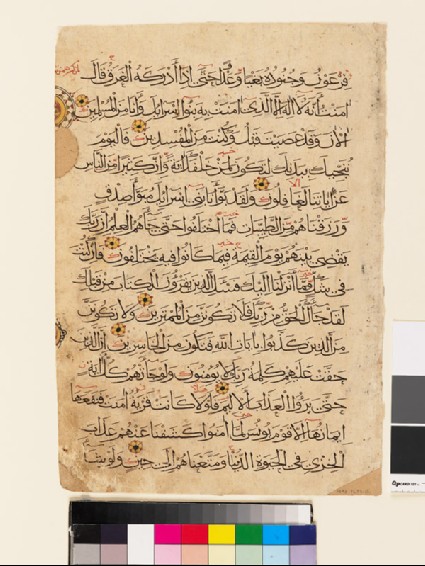 فرعون وجنوده بغيا وعدوا حتى اذا ادركه الغرق قال
امنت انه لا اله الا الذي امنت به بنوا اسرائيل وانا من المسلمين
الآن وقد عصيت قبل وكنت من المفسدين فاليوم
ننجيك ببدنك لتكون لمن خلفك آية وان كثيرا من الناس
عن اياتنا لغافلون ولقد بوأنا بني اسرائيل مبوأ صدق
ورزقناهم من الطيبات فما اختلفوا حتى جاءهم العلم ان ربك
يقضي بينهم يوم القيمة فيما كانوا فيه يختلفون فان كنت
في شك مما انزلنا اليك فسئل الذين يقرؤن الكتاب من قبلك
لقد جاءك الحق من ربك فلا تكونن من الممترين ولا تكونن
من الذين كذبوا بايات الله فتكون من الخاسرين ان الذين
حقت عليهم كلمة ربك لا يؤمنون ولو جاءتهم كل آية
حتى يروا العذاب الاليم فلولا كانت قرية امنت فنفعها
ايمانها الا قوم يونس لما امنوا كشفنا عنهم عذاب
الخزي في الحيوة الدنيا ومتعناهم الى حين ولو شاء